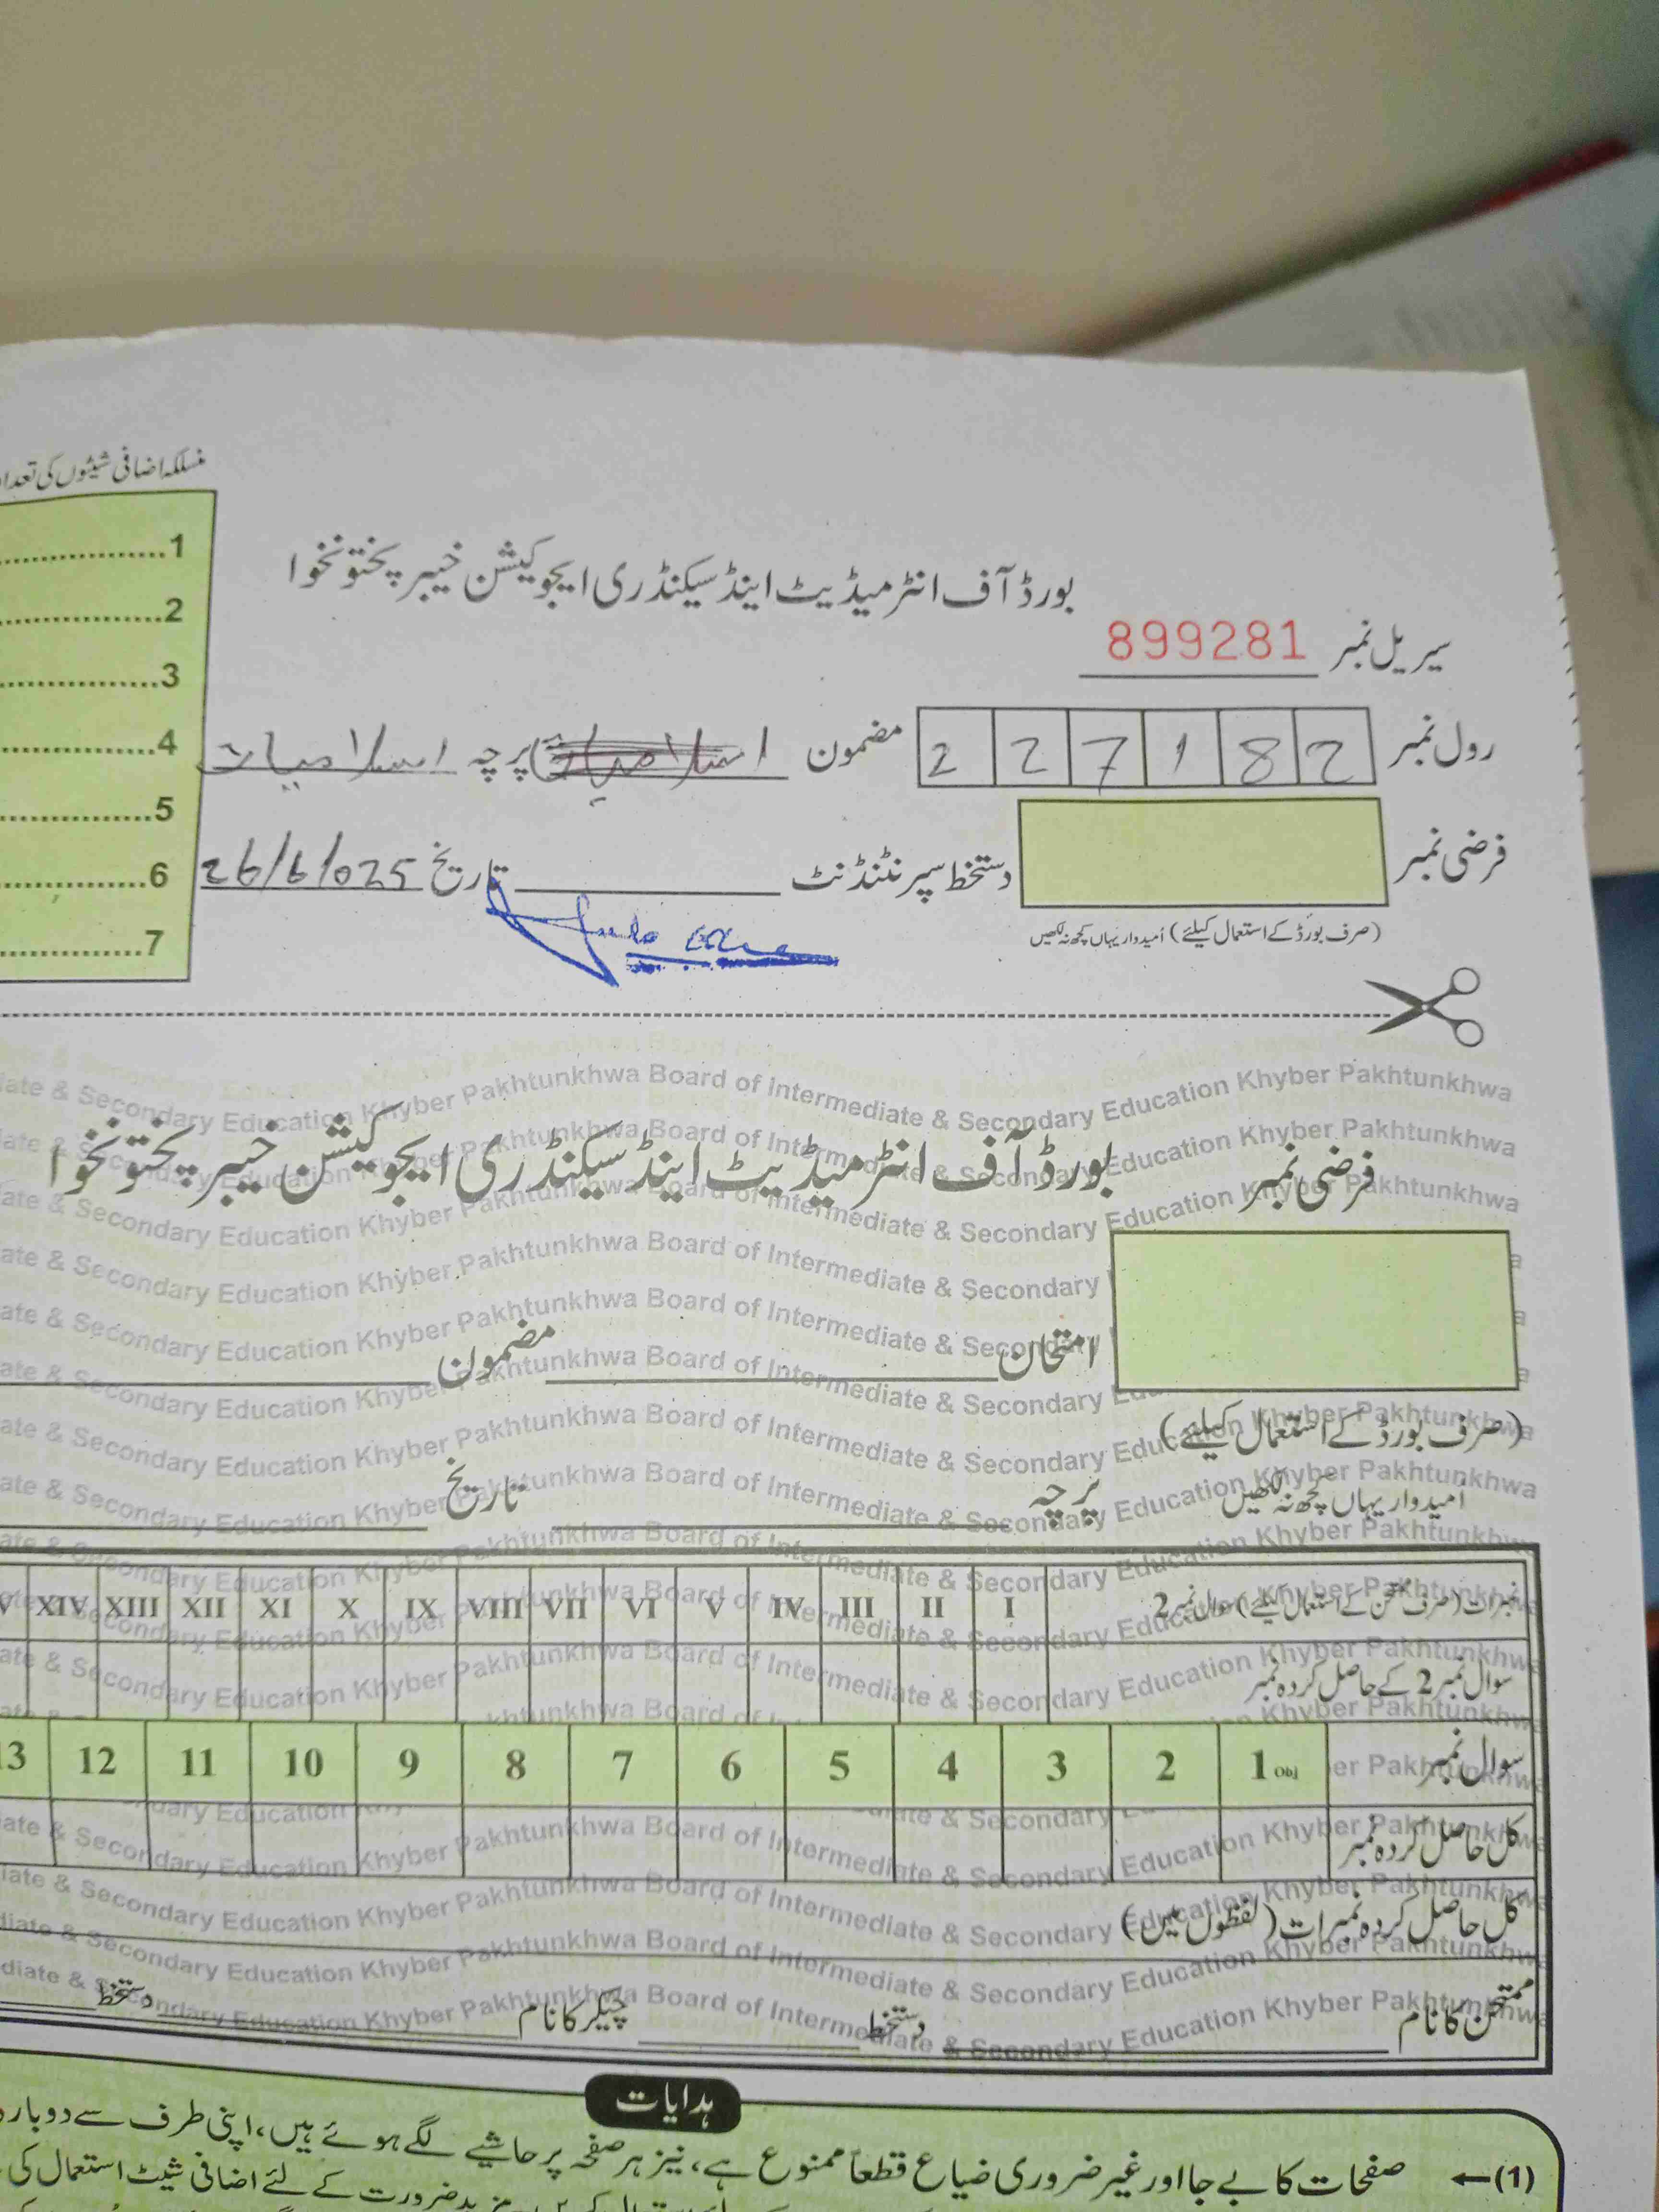 منسلکہ اضافی شیٹوں کی تعداد
1
2
3
4
5
6
7
بورڈ آف انٹرمیڈیٹ اینڈ سیکنڈری ایجوکیشن خیبر پختونخوا
سیریل نمبر 899281
رول نمبر 2 2 7 1 8 2 مضمون اسلامیات پرچہ اسلامیات
فرضی نمبر دستخط سپرنٹنڈنٹ تاریخ 26/6/025
(صرف بورڈ کے استعمال کیلئے) اُمیدوار یہاں کچھ نہ لکھیں
Board of Intermediate & Secondary Education Khyber Pakhtunkhwa
فرضی نمبر بورڈ آف انٹرمیڈیٹ اینڈ سیکنڈری ایجوکیشن خیبر پختونخوا
امتحان مضمون
(صرف بورڈ کے استعمال کیلئے)
اُمیدوار یہاں کچھ نہ لکھیں پرچہ تاریخ
نمبرات (صرف ممتحن کے استعمال کیلئے) سوال نمبر 2 I II III IV V VI VII VIII IX X XI XII XIII XIV
سوال نمبر 2 کے حاصل کردہ نمبر
سوال نمبر 1 Obj 2 3 4 5 6 7 8 9 10 11 12 13
کل حاصل کردہ نمبر
کل حاصل کردہ نمبرات (لفظوں میں)
ممتحن کا نام دستخط چیکر کا نام دستخط
ہدایات
(1) صفحات کا بے جا اور غیر ضروری ضیاع قطعاً ممنوع ہے، نیز ہر صفحہ پر حاشیے لگے ہوئے ہیں، اپنی طرف سے دوبارہ
ضرورت کے لئے اضافی شیٹ استعمال کی